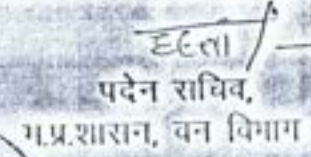 हस्ता/-
पदेन सचिव,
म.प्र.शासन, वन विभाग